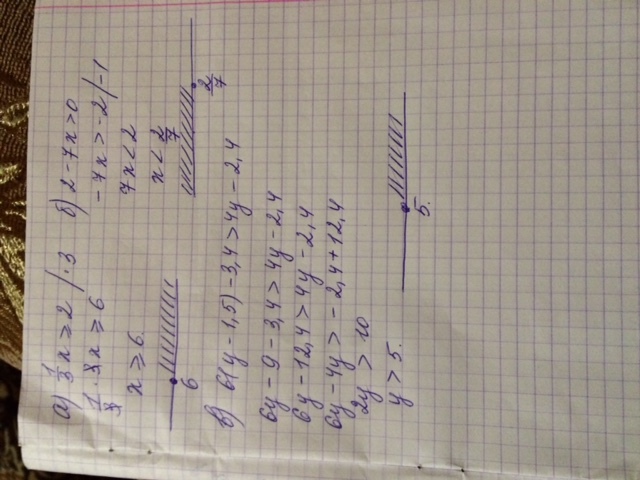 а) 1/3 x ≥ 2 / · 3
1/3 · 3x ≥ 6
x ≥ 6.
6
б) 2 - 7x > 0
-7x > -2 / -1
7x < 2
x < 2/7
2/7
в) 6(y - 1,5) - 3,4 > 4y - 2,4
6y - 9 - 3,4 > 4y - 2,4
6y - 12,4 > 4y - 2,4
6y - 4y > - 2,4 + 12,4
2y > 10
y > 5.
5.